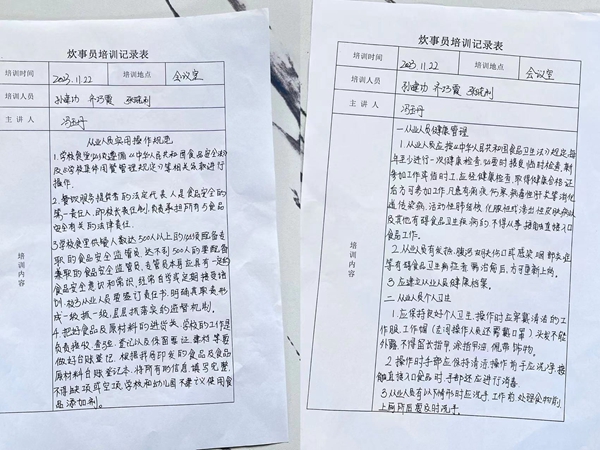 炊事员培训记录表
培训时间 2023.11.22 培训地点 会议室
培训人员 孙建功 齐巧霞
主讲人 冯玉丹
培训内容
从业人员实用操作规范
1.学校食堂必须遵循《中华人民共和国食品安全法》
及《学校集体用餐管理规定》等相关条款进行
操作.
2.餐饮服务提供者的法定代表人是食品安全的
第一责任人,即校长责任制,负责承担所有与食品
安全有关的法律责任.
3.学校食堂供餐人数达500人以上的必须配备专
职的食品安全监管员,达不到500人的要配备
兼职的食品安全监管员,专管员本身应具有一定的
食品安全意识和常识,经常自学或定期接受培
训,校与从业人员要签订责任书,明确其职责,形
成一级抓一级,层层抓落实的监督机制.
4.把好食品及原材料的进货关,学校的工作是
负责接收、查验、登记以及保留票证、建档等,要
做好台账登记,根据并局印发的食品及食品
原材料台账登记本,将所有的信息填写完整,
不得缺项或空项,学校和幼儿园不建议使用食
品添加剂。
炊事员培训记录表
培训时间 2023.11.22 培训地点 会议室
培训人员 孙建功 齐巧霞
主讲人 冯玉丹
培训内容
一.从业人员健康管理
1.从业人员应按《中华人民共和国食品卫生法》规定,每
年至少进行一次健康检查,必要时接受临时检查,新
参加工作或临时工,应经健康检查,取得健康合格证
后方可参加工作,凡患有痢疾、伤寒、病毒性肝炎等消化
道传染病,活动性肺结核,化脓性或渗出性皮肤病以
及其他有碍食品卫生疾病的不得从事接触直接入口
食品工作。
2.从业人员有发热、腹泻、皮肤伤口或感染、咽部炎症
等有碍食品卫生病症者,需治愈后,方可重新上岗。
3.应建立从业人员健康档案。
二.从业人员个人卫生
1.应保持良好个人卫生,操作时应穿戴清洁的工
作服、工作帽(专间操作人员还需戴口罩)头发不能
外露,不得留长指甲,涂指甲油,佩带饰物。
2.操作时手部应保持清洁,操作前手应洗净,接
触直接入口食品时,手部还应进行消毒.
3.从业人员有以下情形时应洗手,工作前、处理食物前,
上厕所后要及时洗手。